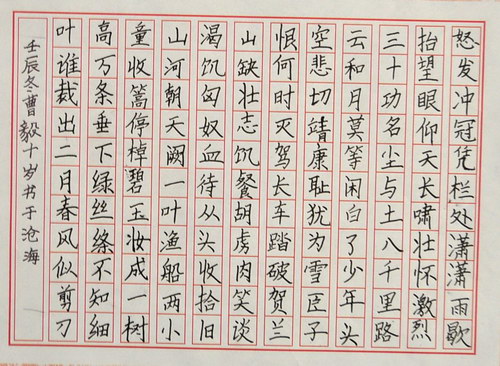 怒发冲冠凭栏处潇潇雨歇
抬望眼仰天长啸壮怀激烈
三十功名尘与土八千里路
云和月莫等闲白了少年头
空悲切靖康耻犹为雪臣子
恨何时灭驾长车踏破贺兰
山缺壮志饥餐胡虏肉笑谈
渴饥匈奴血待从头收拾旧
山河朝天阙一叶渔船两小
童收篙停棹碧玉妆成一树
高万条垂下绿丝绦不知细
叶谁裁出二月春风似剪刀
壬辰冬曹毅十岁书于沧海